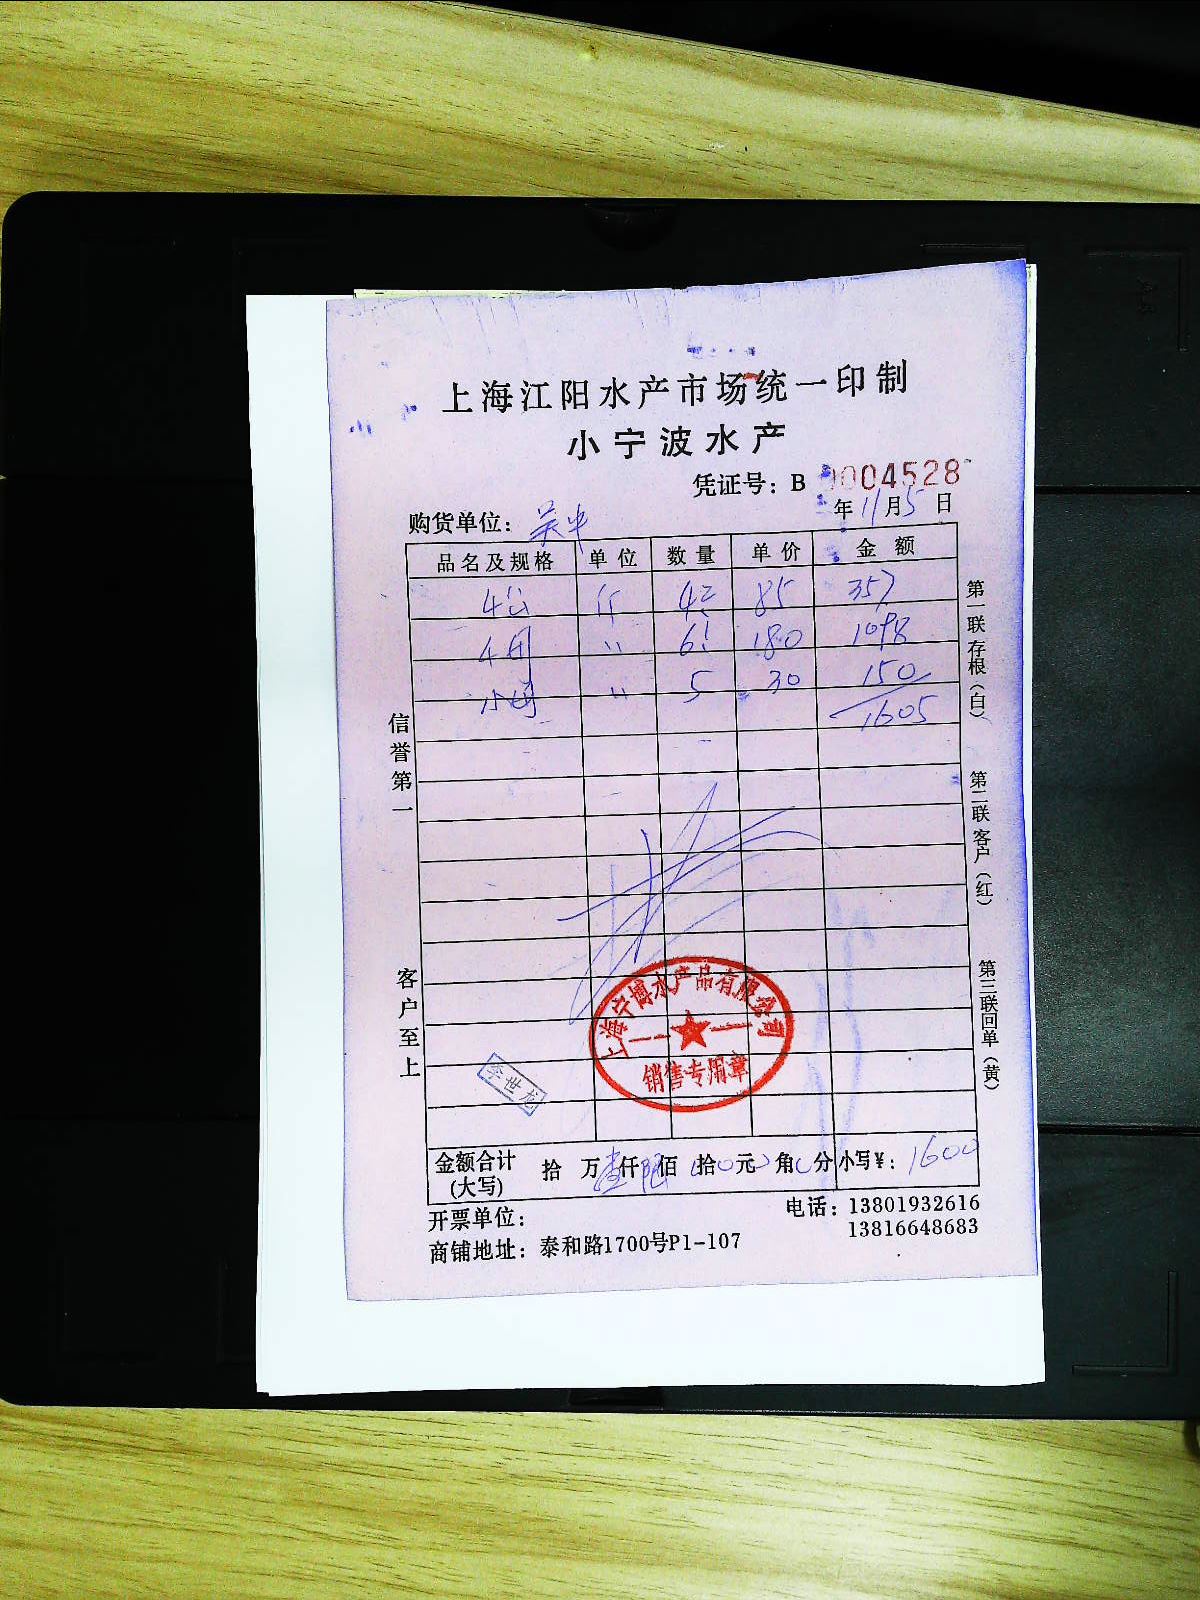 上海江阳水产市场统一印制
小宁波水产
凭证号：B 0004528
年11月5日
购货单位：吴中
品名及规格 单位 数量 单价 金额
4公 斤 4.2 85 357
4母 〃 6.1 180 1098
小母 〃 5 30 150
1605
信誉第一
客户至上
第一联存根(白)
第二联客户(红)
第三联回单(黄)
上海宁博水产品有限公司
销售专用章
李世龙
金额合计(大写) 拾 万壹仟陆佰0拾0元0角0分 小写¥：1600
开票单位：
电话：13801932616
13816648683
商铺地址：泰和路1700号P1-107